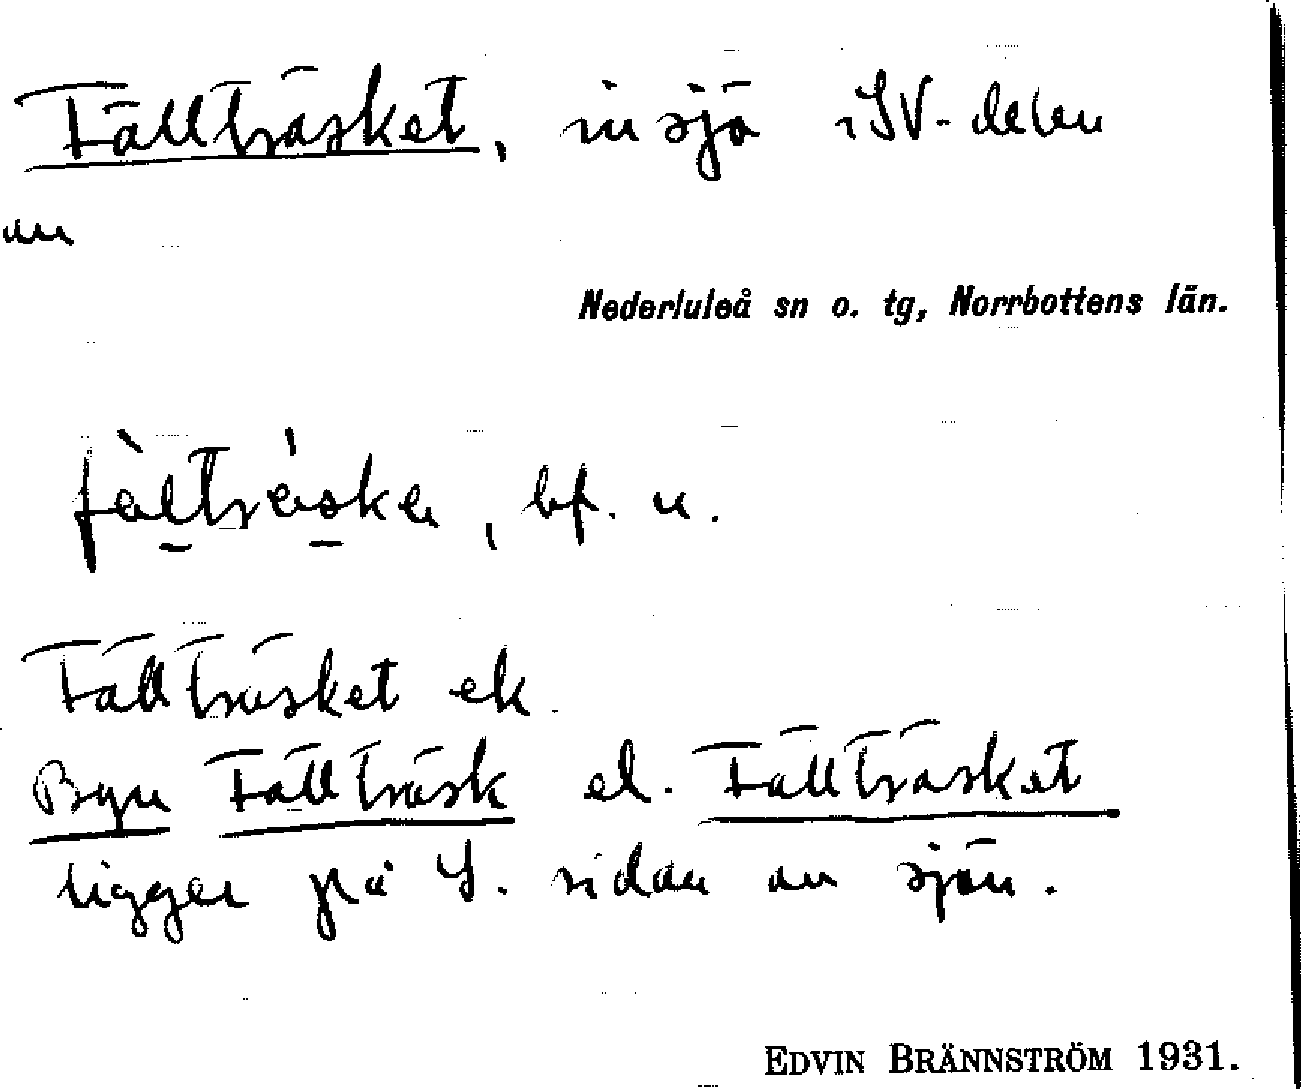 Fällträsket, insjö i SV-delen
av
Nederluleå sn o. tg, Norrbottens län.
bf. n.
Fällträsket ek.
Byn Fällträsk el. Fällträsket
ligger på S. sidan av sjön.
EDVIN BRÄNNSTRÖM 1931.